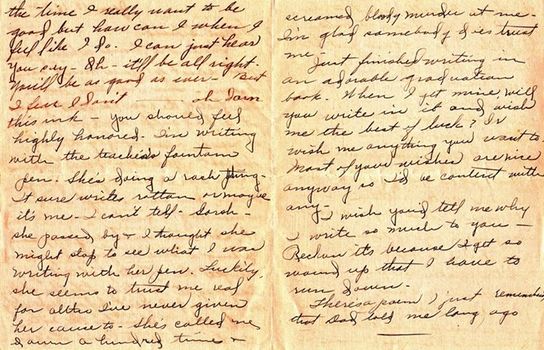 the time I really want to be
good but how can I when I
feel like I do. I can just hear
you say - Oh - it'll be all right.
You'll be as good as ever - But
I fear I don't oh darn
this ink - you should feel
highly honored. I'm writing
with the teacher's fountain
pen. She's doing a rash thing -
It sure writes rotten or maybe
its me - I can't tell - Gosh -
she passed by & I thought she
might stop to see what I was
writing with her pen. Luckily
she seems to trust me real
for altho I've never given
her cause to - She's called me
down a hundred times &
screamed bloody murder at me -
I'm glad somebody does trust
me -
Just finished writing in
an adorable graduation
book. When I get mine will
you write in it and wish
me the best of luck? Or
wish me anything you want to.
Most of your wishes are nice
anyway so I'd be content with
any -
I wish you'd tell me why
I write so much to you -
Reckon its because I get so
wound up that I have to
run down -
Theres a poem I just remember
that Dad told me long ago